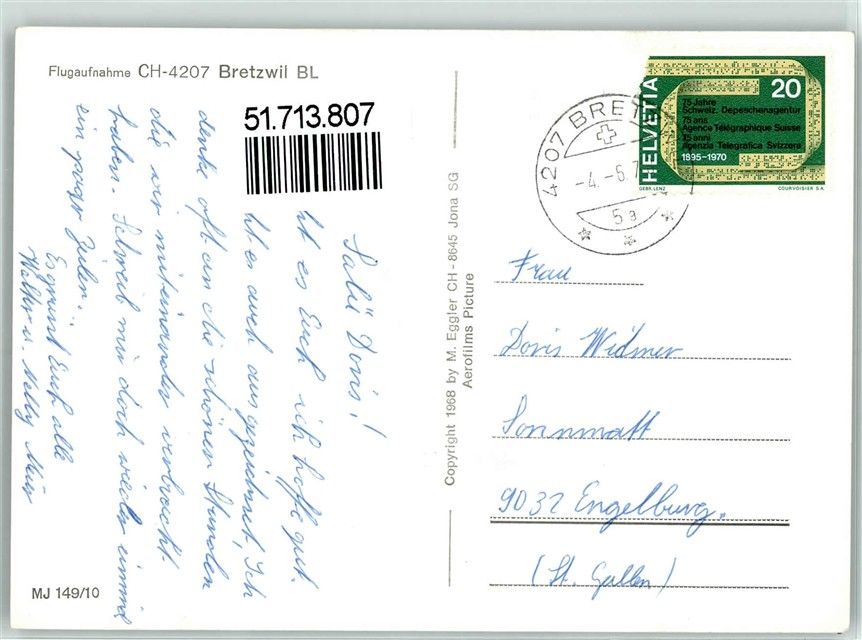 Flugaufnahme CH-4207 Bretzwil BL
51.713.807
Salü Doris!
ht es Euch ich hoffe gut.
ht es auch ausgezeichnet. Ich
denke oft an die schönen Stunden
die wir miteinander verbracht
haben. Schreib mir doch wieder einmal
ein paar Zeilen.
Es grüsst Euch alle
Walter u. Nelly
MJ 149/10
Copyright 1968 by M. Eggler CH-8645 Jona SG
Aerofilms Picture
4207 BRET
-4.-6.7
5a
HELVETIA
20
75 Jahre
Schweiz. Depeschenagentur
75 ans
Agence Télégraphique Suisse
75 anni
Agenzia Telegrafica Svizzera
1895-1970
GEBR. LENZ
COURVOISIER S.A.
Frau
Doris Widmer
Sonnmatt
9032 Engelburg.
(St. Gallen)